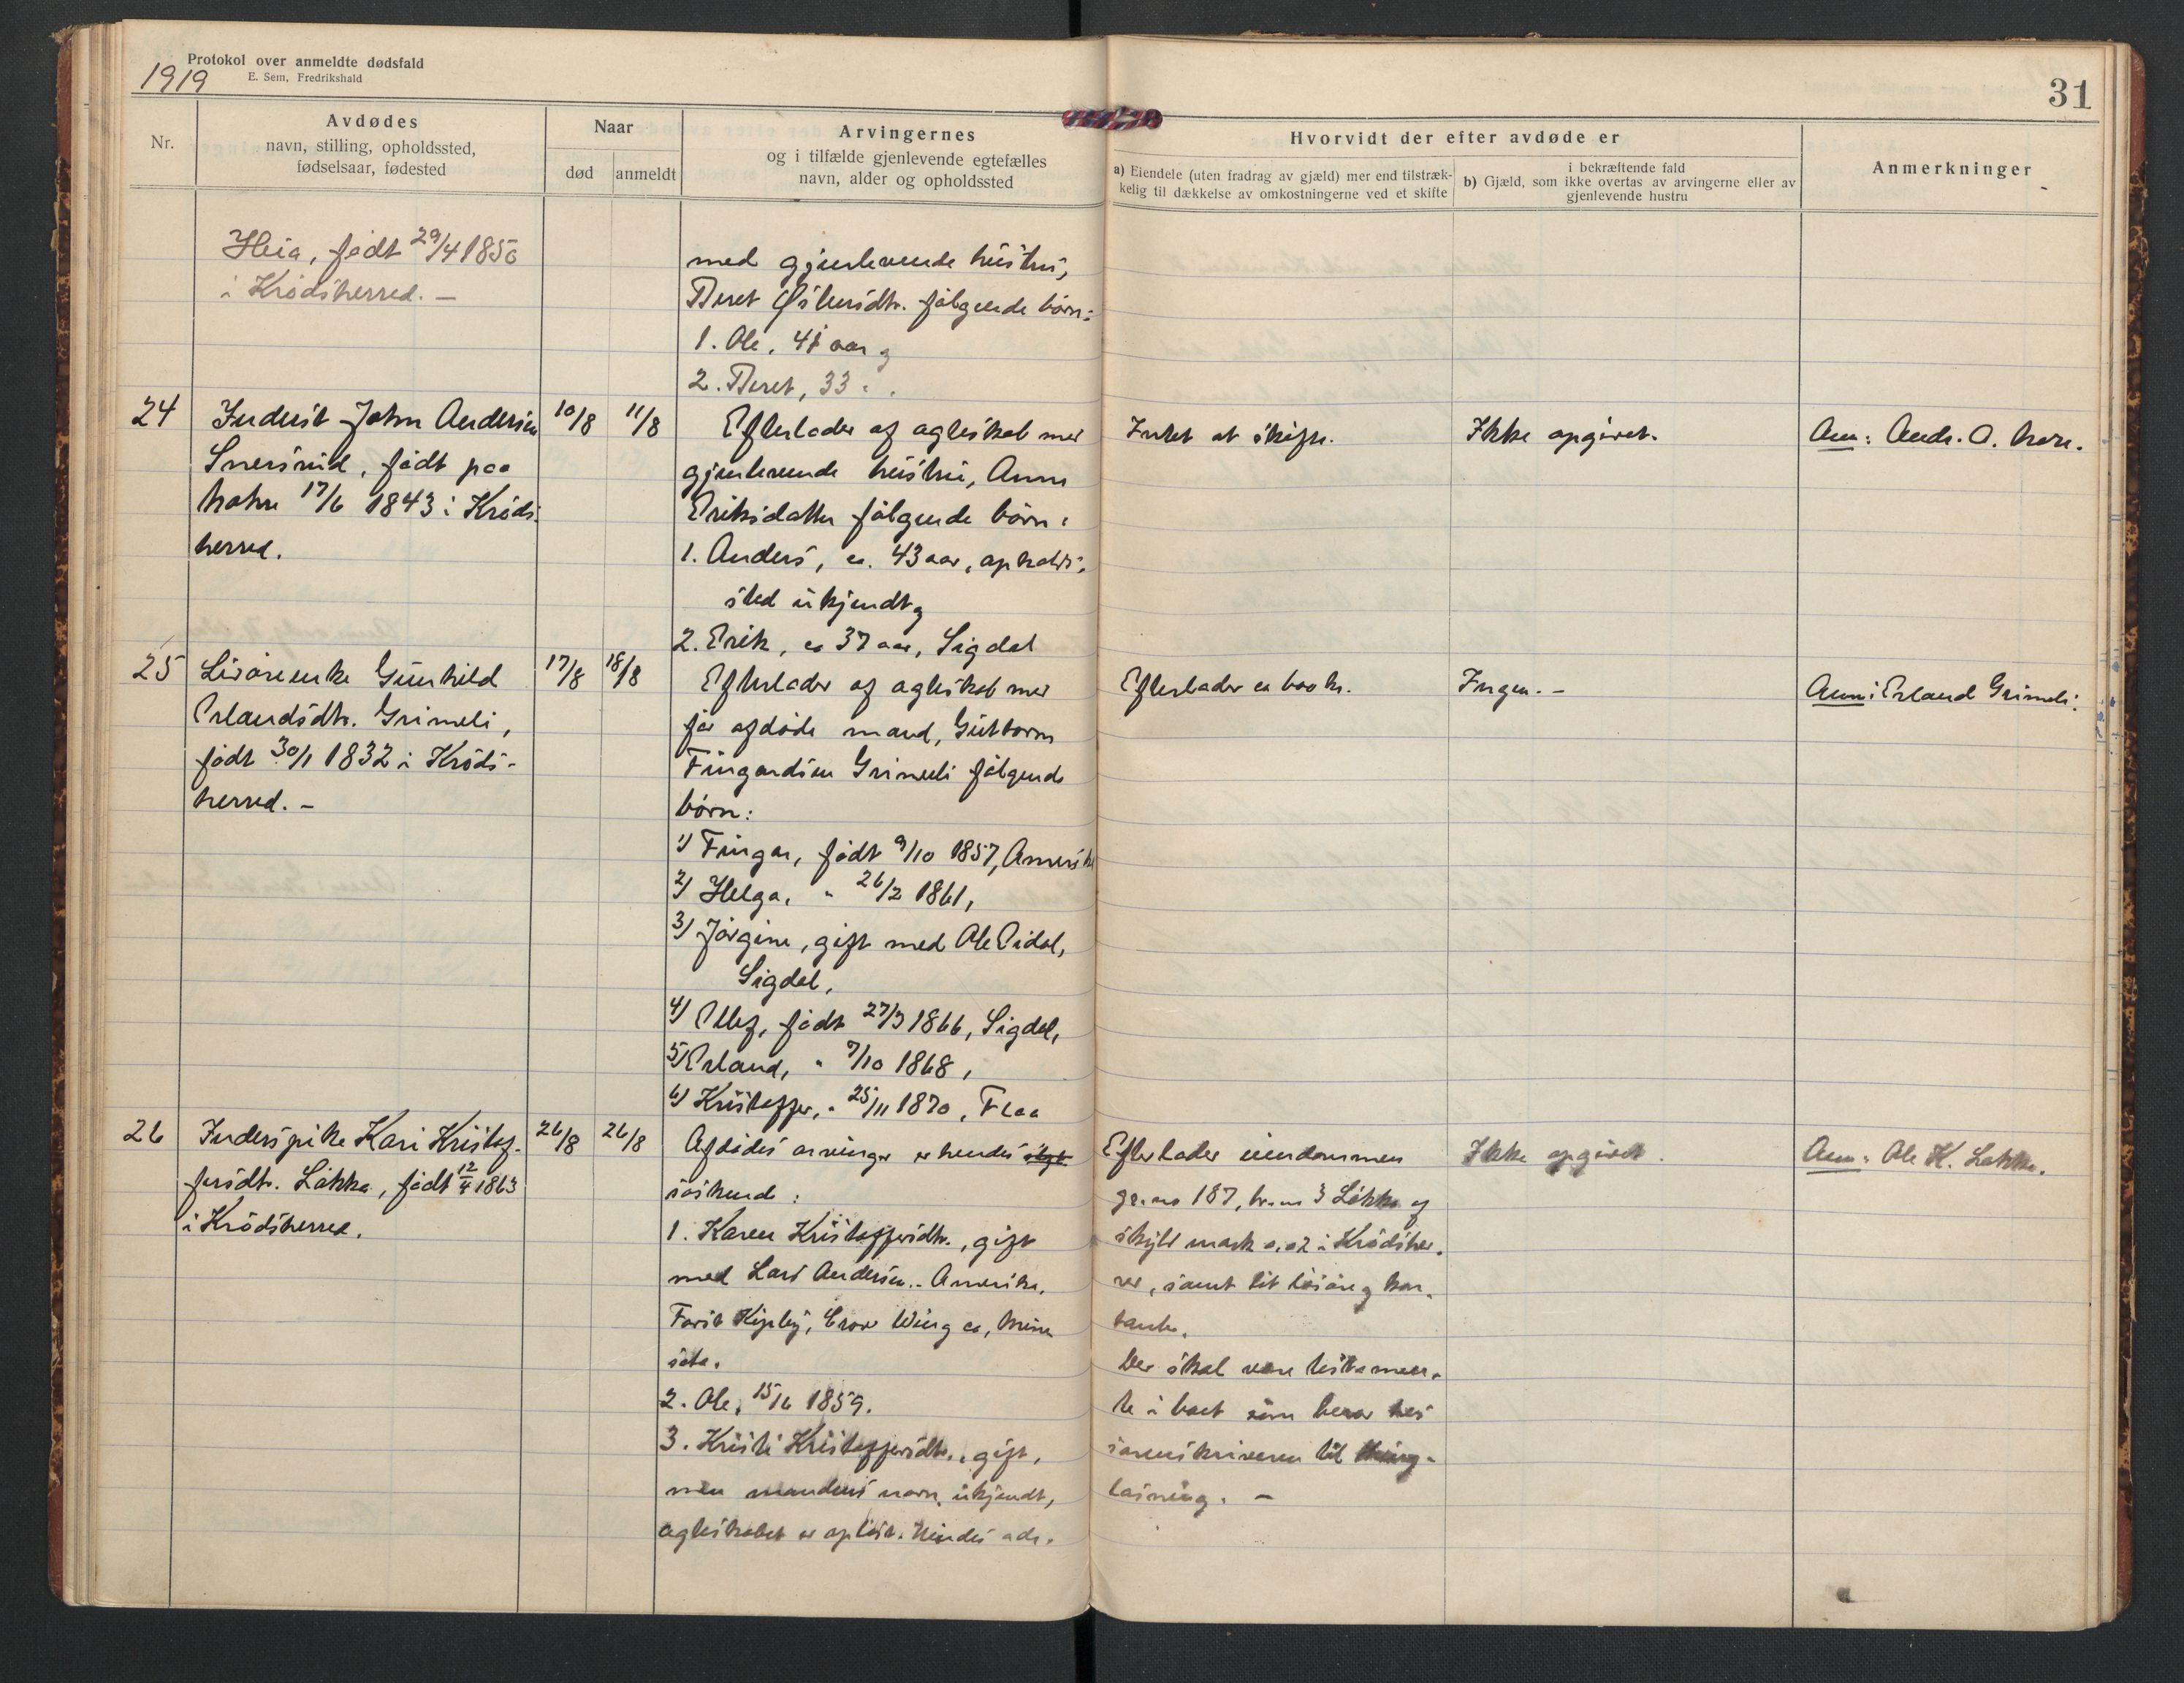 Protokol over anmeldte dødsfald
E. Sem, Fredrikshald
1919
31
Nr.
Avdødes
navn, stilling, opholdssted,
fødselsaar, fødested
Naar
død
anmeldt
Arvingernes
og i tilfælde gjenlevende egtefælles
navn, alder og opholdssted
Hvorvidt der efter avdøde er
a) Eiendele (uten fradrag av gjæld) mer end tilstræk-
kelig til dækkelse av omkostningerne ved et skifte
i bekræftende fald
b) Gjæld, som ikke overtas av arvingerne eller av
gjenlevende hustru
Anmerkninger
Heia, født 29/4 1850
i Krødsherred. —
med gjenlevende hustru,
Beret følgende børn:
1. Ole, 41 aar og
2. Beret, 33 "
24
Inderst John Andersen
Snersrud, født paa
17/6 1843 i Kröds-
herred.
10/8
11/8
Efterlader af ægteskab med
gjenlevende hustru, Anne
Eriksdatter følgende børn:
1. Anders, ca. 43 aar, opholds-
sted ukjendt og
2. Erik, ca 37 aar, Sigdal
Intet at skifte.
Ikke opgivet.
Anm: Andr. O.
25
Livørenke Gunhild
Erlandsdtr. Grimeli,
født 30/1 1832 i Kröds-
herred. —
17/8
18/8
Efterlader af ægteskab med
før afdøde mand, Guttorm
Fingardsen Grimeli følgende
børn:
1) Fingar, født 9/10 1857, Amerika
2) Helga, " 26/2 1861,
3) Jørgine, gift med Ole Eidal,
Sigdal,
4) Ellef, født 27/3 1866, Sigdal,
5) Erland, " 7/10 1868,
6) Kristoffer, " 25/11 1870, Flaa
Efterlader ca 600 kr.
Ingen. —
Anm: Erland Grimeli.
26
Inderspike Kari Kristof-
fersdtr. Løkka, født 12/4 1863
i Krödsherred.
26/8
26/8
Afdødes arvinger er hendes
søskend:
1. Karen Kristoffersdtr., gift
med Lars Andersen. - Amerika,
Crow Wing co, Minne
sota.
2. Ole, 15/6 1859.
3. Kristi Kristoffersdtr., gift,
men mandens navn ukjendt,
ægteskabet er opløst. Hendes adr.
Efterlader eiendommen
gr.no 187, br.no 3 Løkka af
skyld mark 0,02 i Krödsher-
red, samt lit løsøre og kon-
tanter.
Der skal være testamen-
te i boet som beror hos
sorenskriveren til thing-
læsning. —
Ikke opgivet.
Anm: Ole K. Løkka.